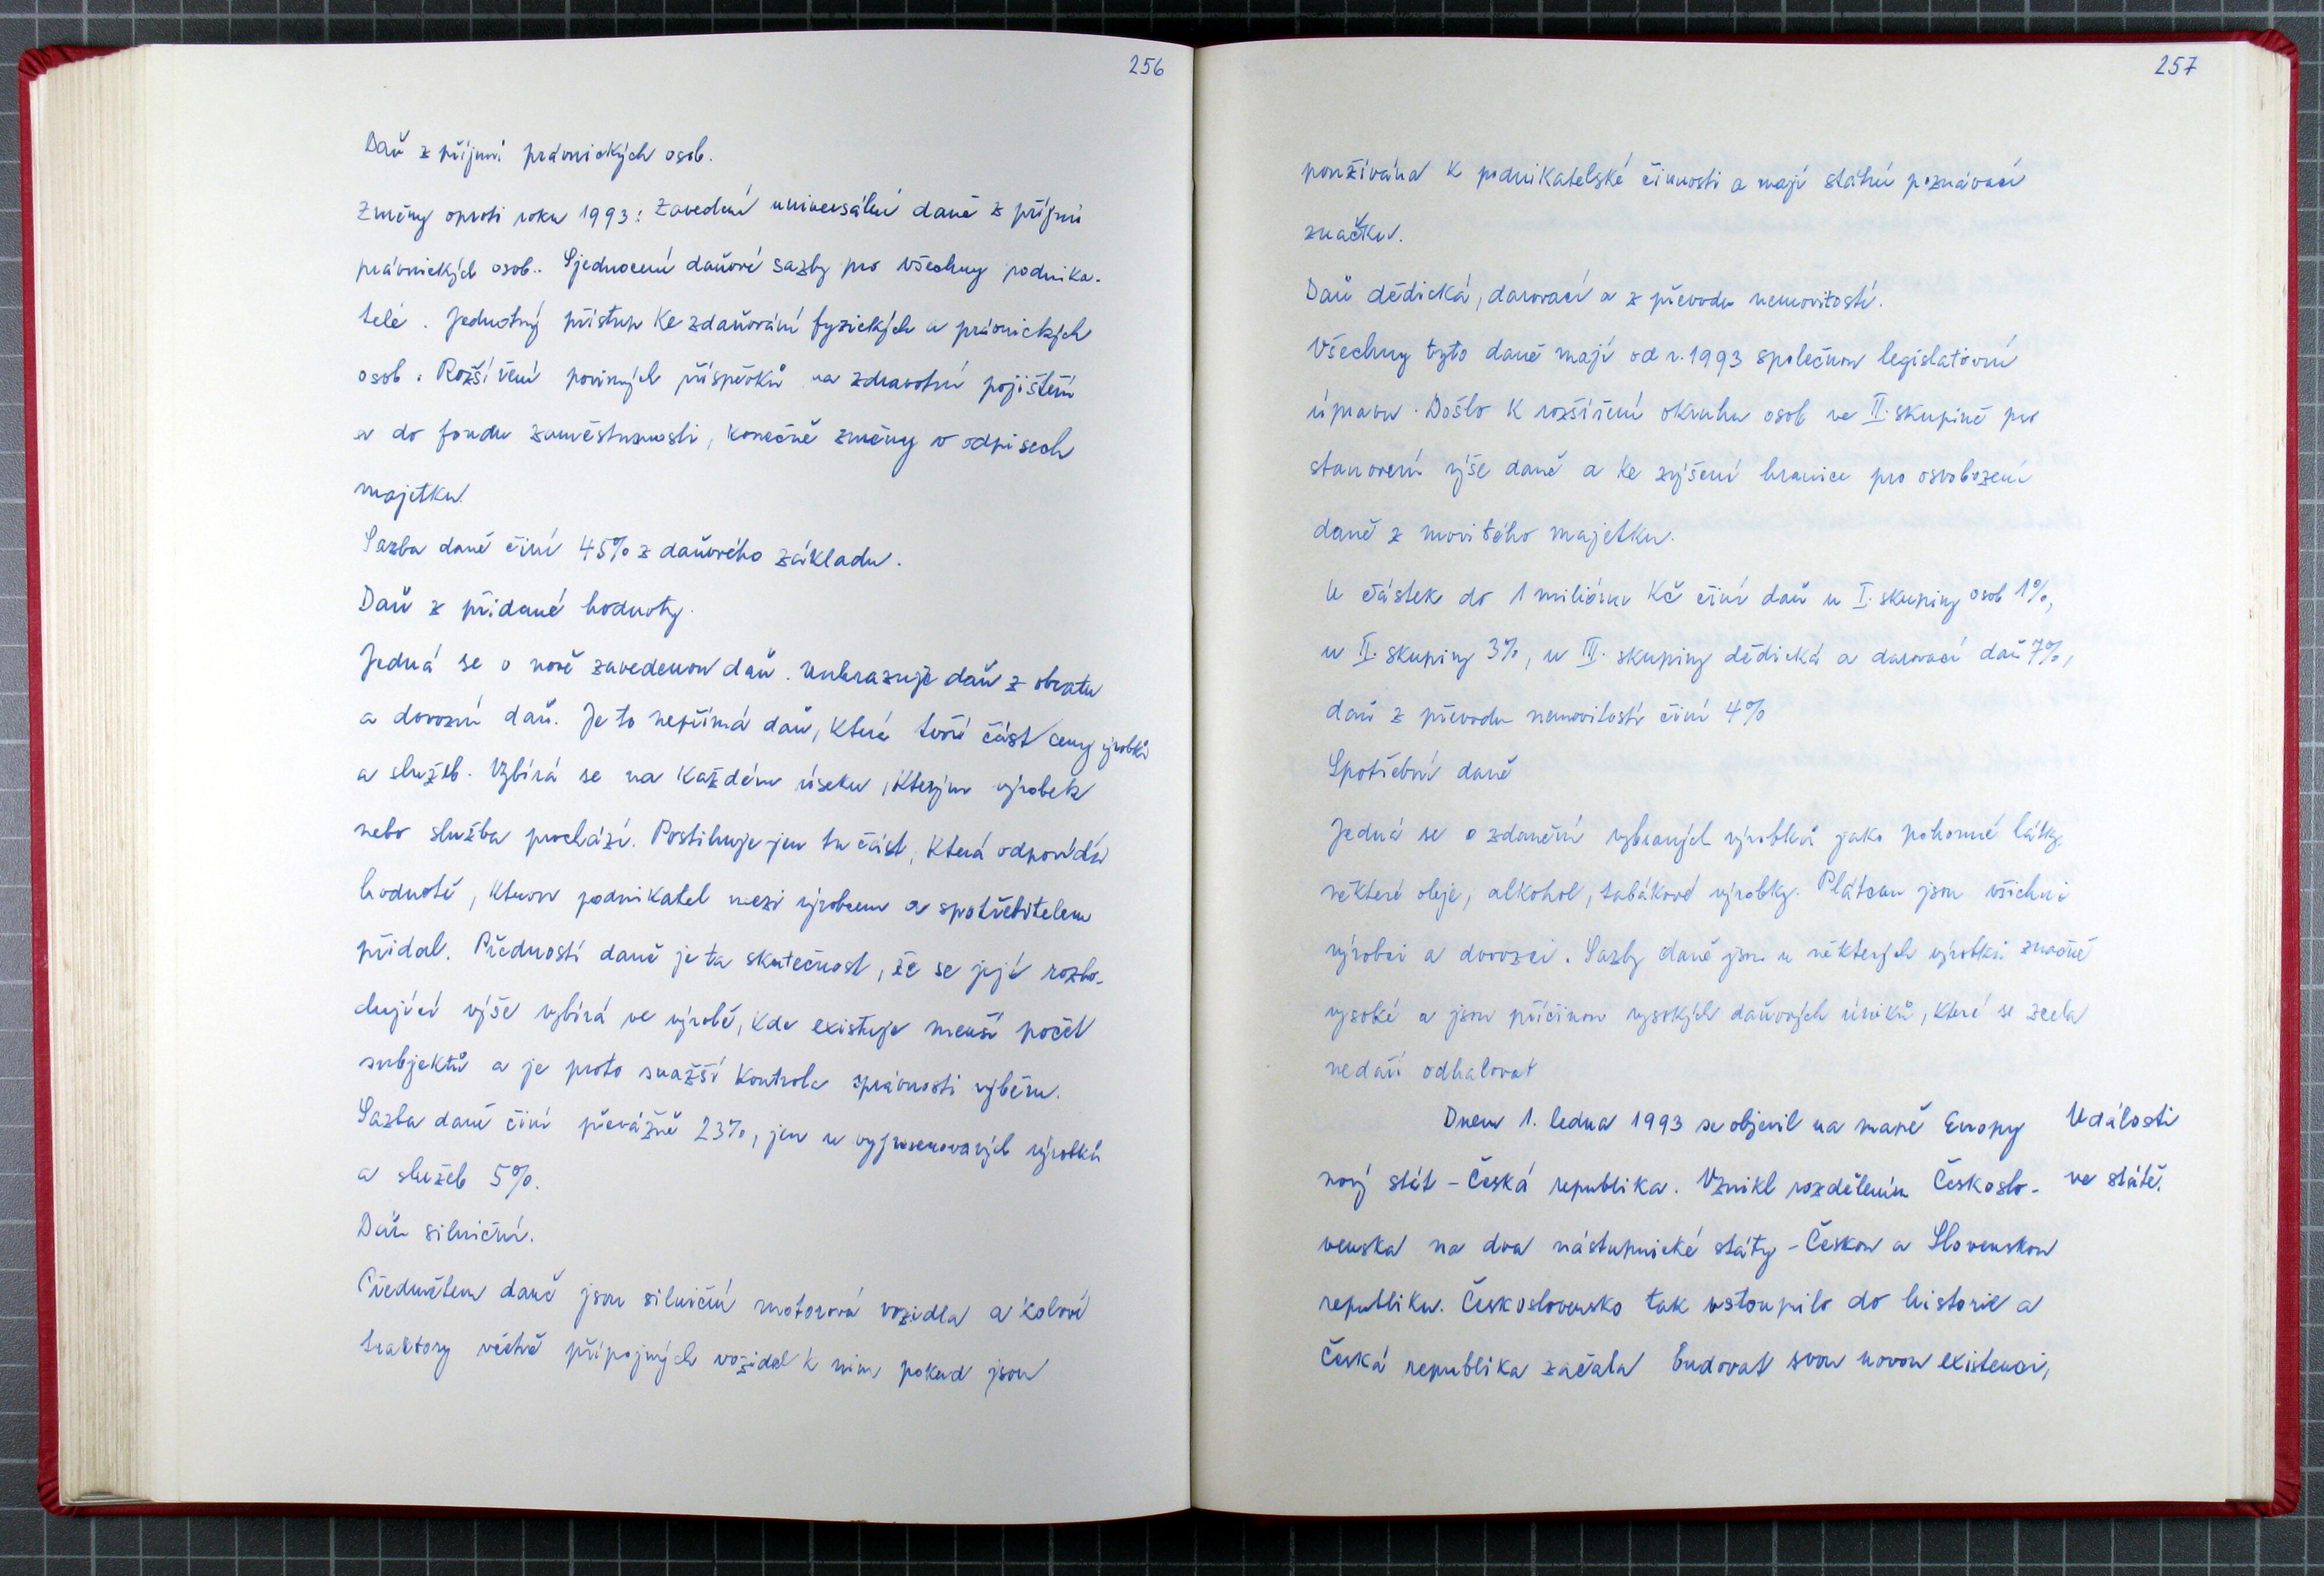 256
Daň z příjmů právnických osob.
Změny oproti roku 1993: Zavedení universální daně z příjmů
právnických osob.. Sjednocení daňové sazby pro všechny podnika-
telé. Jednotný přístup ke zdaňování fyzických a právnických
osob. Rozšíření povinných příspěvků na zdravotní pojištění
a do fondu zaměstnanosti, konečně změny v odpisech
majetku.
Sazba daně činí 45% z daňového základu.
Daň z přidané hodnoty.
Jedná se o nově zavedenou daň. Nahrazuje daň z obratu
a dovozní daň. Je to nepřímá daň, která tvoří část ceny výrobků
a služeb. Vybírá se na každém úseku, kterým výrobek
nebo služba prochází. Postihuje jen tu část, která odpovídá
hodnotě, kterou podnikatel mezi výrobcem a spotřebitelem
přidal. Předností daně je ta skutečnost, že se její rozho-
dující výše vybírá ve výrobě, kde existuje menší počet
subjektů a je proto snažší kontrola správnosti výběru.
Sazba daně činí převážně 23%, jen u vyjmenovaných výrobků
a služeb 5%.
Daň silniční.
Předmětem daně jsou silniční motorová vozidla a kolové
traktory včetně přípojných vozidel k nim pokud jsou
257
používána k podnikatelské činnosti a mají státní poznávací
značku.
Daň dědická, darovací a z převodu nemovitostí.
Všechny tyto daně mají od r. 1993 společnou legislativní
úpravu. Došlo k rozšíření okruhu osob ve II. skupině pro
stanovení výše daně a ke zvýšení hranice pro osvobození
daně z movitého majetku.
U částek do 1 miliónu Kč činí daň u I. skupiny osob 1%,
u II. skupiny 3%, u III. skupiny dědická a darovací daň 7%,
daň z převodu nemovitostí činí 4%
Spotřební daně
Jedná se o zdanění vybraných výrobků jako pohonné látky,
některé oleje, alkohol, tabákové výrobky. Plátcem jsou všichni
výrobci a dovozci. Sazby daně jsou u některých výrobků značně
vysoké a jsou příčinou vysokých daňových úniků, které se zcela
nedaří odhalovat
Dnem 1. ledna 1993 se objevil na mapě Evropy
nový stát - Česká republika. Vznikl rozdělením Českoslo-
venska na dva nástupnické státy - Českou a Slovenskou
republiku. Československo tak vstoupilo do historie a
Česká republika začala budovat svou novou existenci,
Události
ve státě.